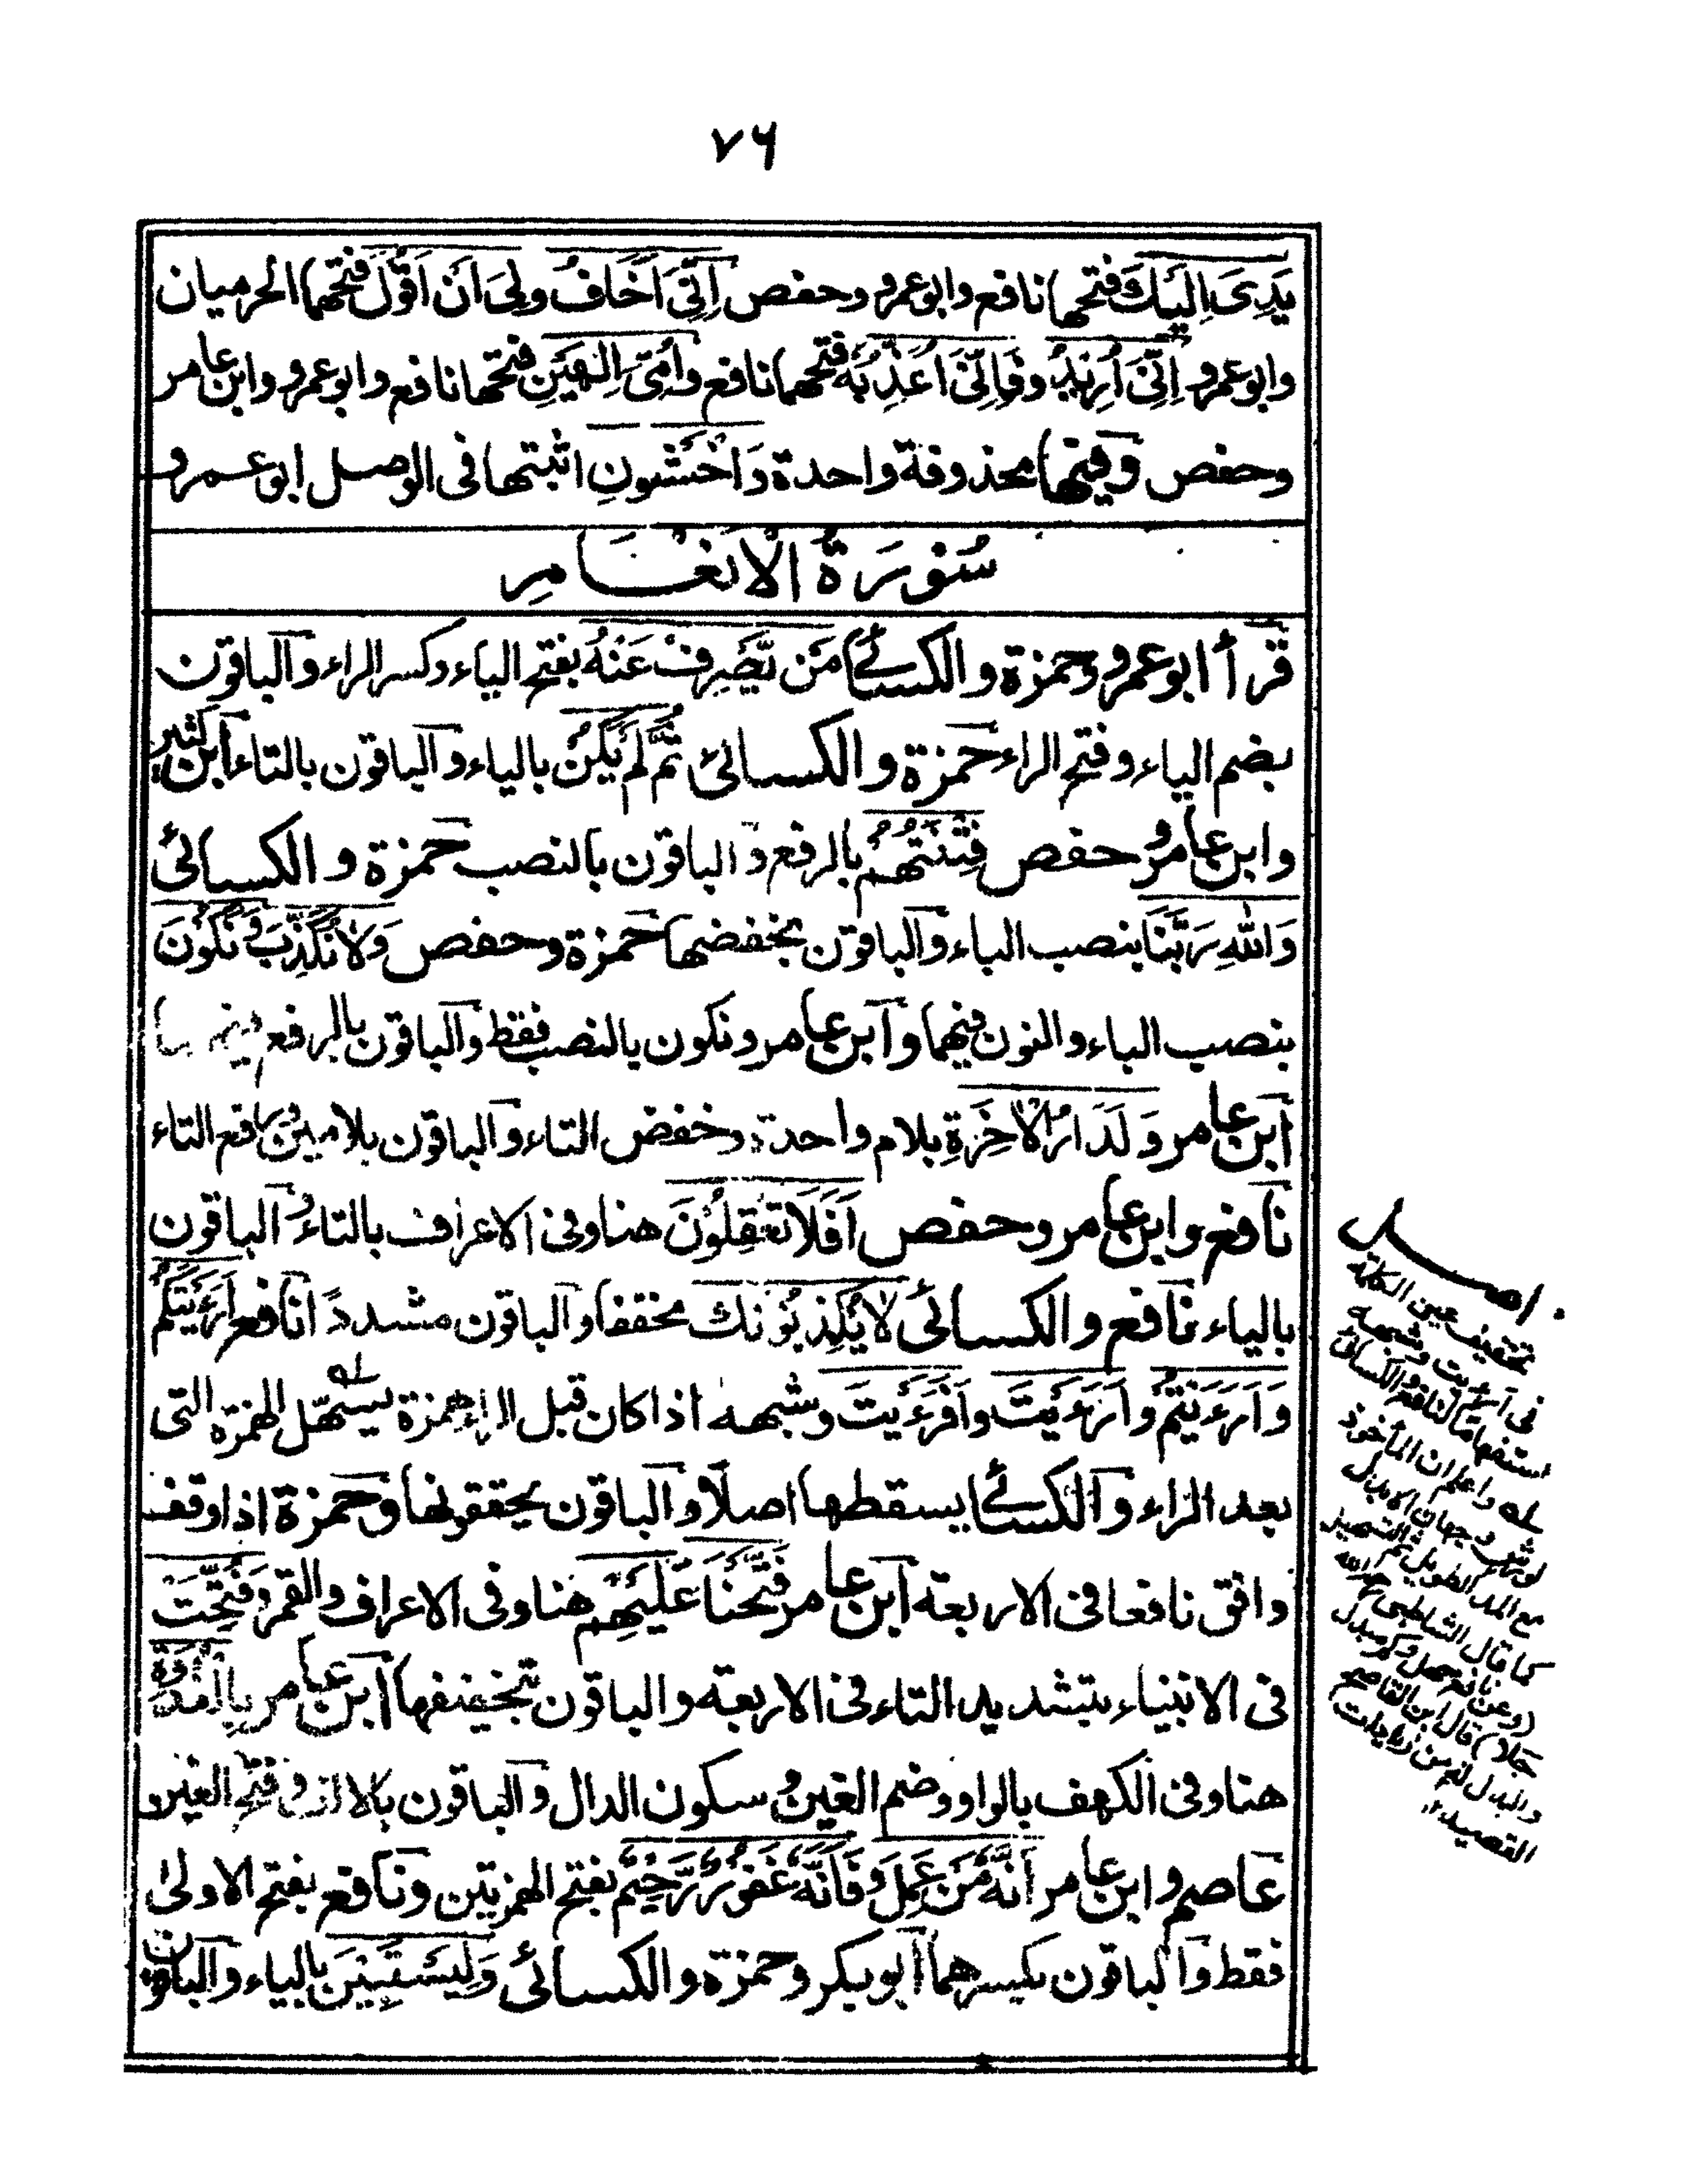 ٧٦
يَدِىَ اِلَيْكَ فتحها نافع وابوعمرو وحفص اِنِّىَ اَخَافُ ولِىَ اَنْ اَقُوْلَ فتحهما الحرميان
وابوعمرو اِنِّىَ اُرِيْدُ وفَاِنِّىَ اُعَذِّبُهٗ فتحهما نافع واُمِّىَ اِلٰهَيْنِ فتحها نافع وابوعمرو وابن عامر
وحفص وفيها محذوفة واحدة وَاخْشَوْنِ اثبتها فى الوصل ابوعمرو
سُوْرَةُ الْاَنْعَامِ
قرأ ابوعمرو وحمزة والكسائى مَنْ يَّصْرِفْ عَنْهُ بفتح الياء وكسر الراء والباقون
بضم الياء وفتح الراء حمزة والكسائى ثُمَّ لَمْ يَكُنْ بالياء والباقون بالتاء ابن كثير
وابن عامر وحفص فِتْنَتُهُمْ بالرفع والباقون بالنصب حمزة والكسائى
وَاللّٰهِ رَبَّنَا بنصب الباء والباقون بخفضها حمزة وحفص وَلَا نُكَذِّبَ وَنَكُوْنَ
بنصب الباء والنون فيهما وابن عامر ونكون بالنصب فقط والباقون بالرفع فيهما
ابن عامر وَلَدَارُ الْاٰخِرَةِ بلام واحدة وخفض التاء والباقون بلامين ورفع التاء
نافع وابن عامر وحفص اَفَلَا تَعْقِلُوْنَ هنا وفى الاعراف بالتاء والباقون
بالياء نافع والكسائى لَا يُكْذِبُوْنَكَ مخففا والباقون مشدداً نافع اَرَءَيْتَكُمْ
وَاَرَءَيْتُمْ وَاَرَءَيْتَ وَاَفَرَءَيْتَ وشبهه اذا كان قبل الراء همزة يسهل الهمزة التى
بعد الراء والكسائى يسقطها اصلا والباقون يحققونها وحمزة اذا وقف
وافق نافعا فى الاربعة ابن عامر فَتَّحْنَا عَلَيْهِمْ هنا وفى الاعراف والقمر وَفُتِّحَتْ
فى الانبياء بتشديد التاء فى الاربعة والباقون بتخفيفها ابن عامر بِالْغُدْوَةِ
هنا وفى الكهف بالواو وضم الغين وسكون الدال والباقون بالالف وفتح الغين و
عاصم وابن عامر اَنَّهٗ مَنْ عَمِلَ وَفَاَنَّهٗ غَفُوْرٌ رَّحِيْمٌ بفتح الهمزتين ونافع بفتح الاولىٰ
فقط والباقون بكسرهما ابوبكر وحمزة والكسائى وَلِيَسْتَبِيْنَ بالياء والباقون
اصل
تخفيف عين الكلمة
فى أرءيت وشبهه
استفهاما لنافع والكسائى
له واعلم ان المأخوذ
لورش وجهان الابدال
مع المد الطويل ثم التسهيل
كما قال الشاطبى رحمه الله
(وعن نافع سهل وكم مبدل
جلا) قال ابن القاصح
والبدل له من زيادات
القصيد ١٢